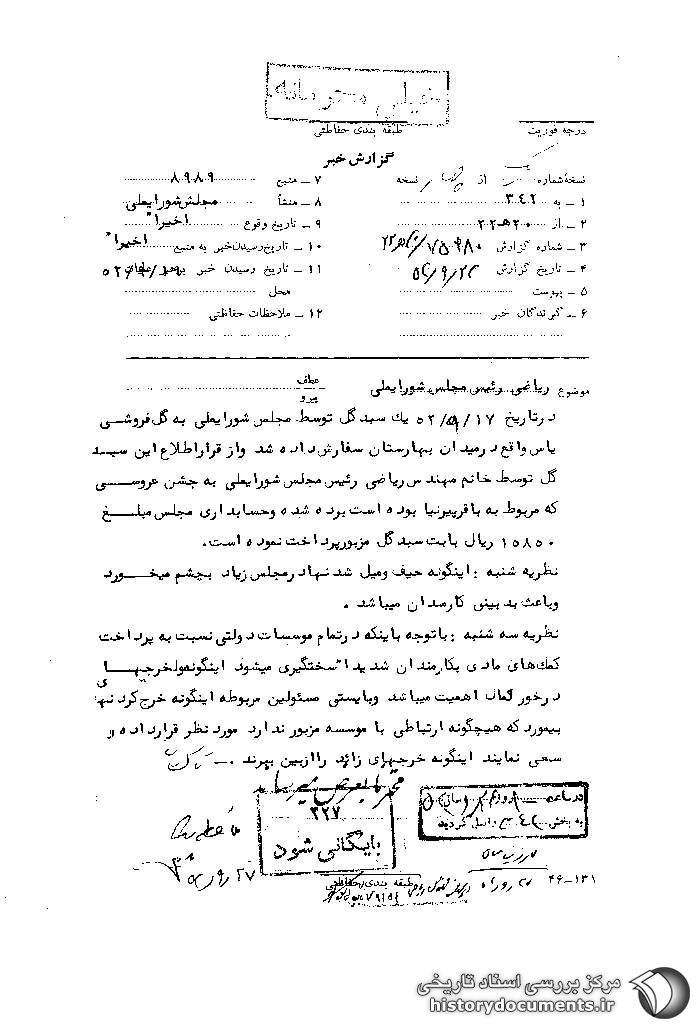 خیلی محرمانه
درجه فوریت
طبقه بندی حفاظتی
گزارش خبر
نسخه شماره یک از چهار نسخه
۱ - به ۳۴۲
۲ - از ۲۰ هـ ۲۲
۳ - شماره گزارش
۴ - تاریخ گزارش
۵ - پیوست
۶ - گیرندگان خبر
۷ - منبع ۸۹۸۹
۸ - منشأ مجلس شورایملی
۹ - تاریخ وقوع اخیرا"
۱۰ - تاریخ رسیدن خبر به منبع اخیرا"
۱۱ - تاریخ رسیدن خبر به رهبر عملیات
محل
۱۲ - ملاحظات حفاظتی
موضوع ریاضی رئیس مجلس شورایملی
عطف
پیرو
درتاریخ ۵۲/۹/۱۷ یك سبد گل توسط مجلس شورایملی به گل فروشی
یاس واقع درمیدان بهارستان سفارش داده شد واز قراراطلاع این سبد
گل توسط خانم مهندس ریاضی رئیس مجلس شورایملی به جشن عروسی
که مربوط به باقرپیرنیا بوده است برده شده وحسابداری مجلس مبلغ
۱۵۸۵۰ ریال بابت سبد گل مزبورپرداخت نموده است.
نظریه شنبه : اینگونه حیف ومیل شدنهادرمجلس زیاد بچشم میخورد
وباعث بدبینی کارمندان میباشد .
نظریه سه شنبه : باتوجه باینکه درتمام موسسات دولتی نسبت به پرداخت
کمكهای مادی بکارمندان شدیدا" سختگیری میشود اینگونه ولخرجیهای
درخور کمال اهمیت میباشد وبایستی مسئولین مربوطه اینگونه خرج کردنهای
بیمورد که هیچگونه ارتباطی با موسسه مزبور ندارد مورد نظر قرارداده و
سعی نمایند اینگونه خرجهای زائد راازبین ببرند .-
محترما بعرض میرساند
۳۲۷
بایگانی شود
در ساعت روز
به بخش ۳۴۲ واصل گردید
۲۷/۹
طبقه بندی حفاظتی
۴۶-۱۳۱
مرکز بررسی اسناد تاریخی
historydocuments.ir